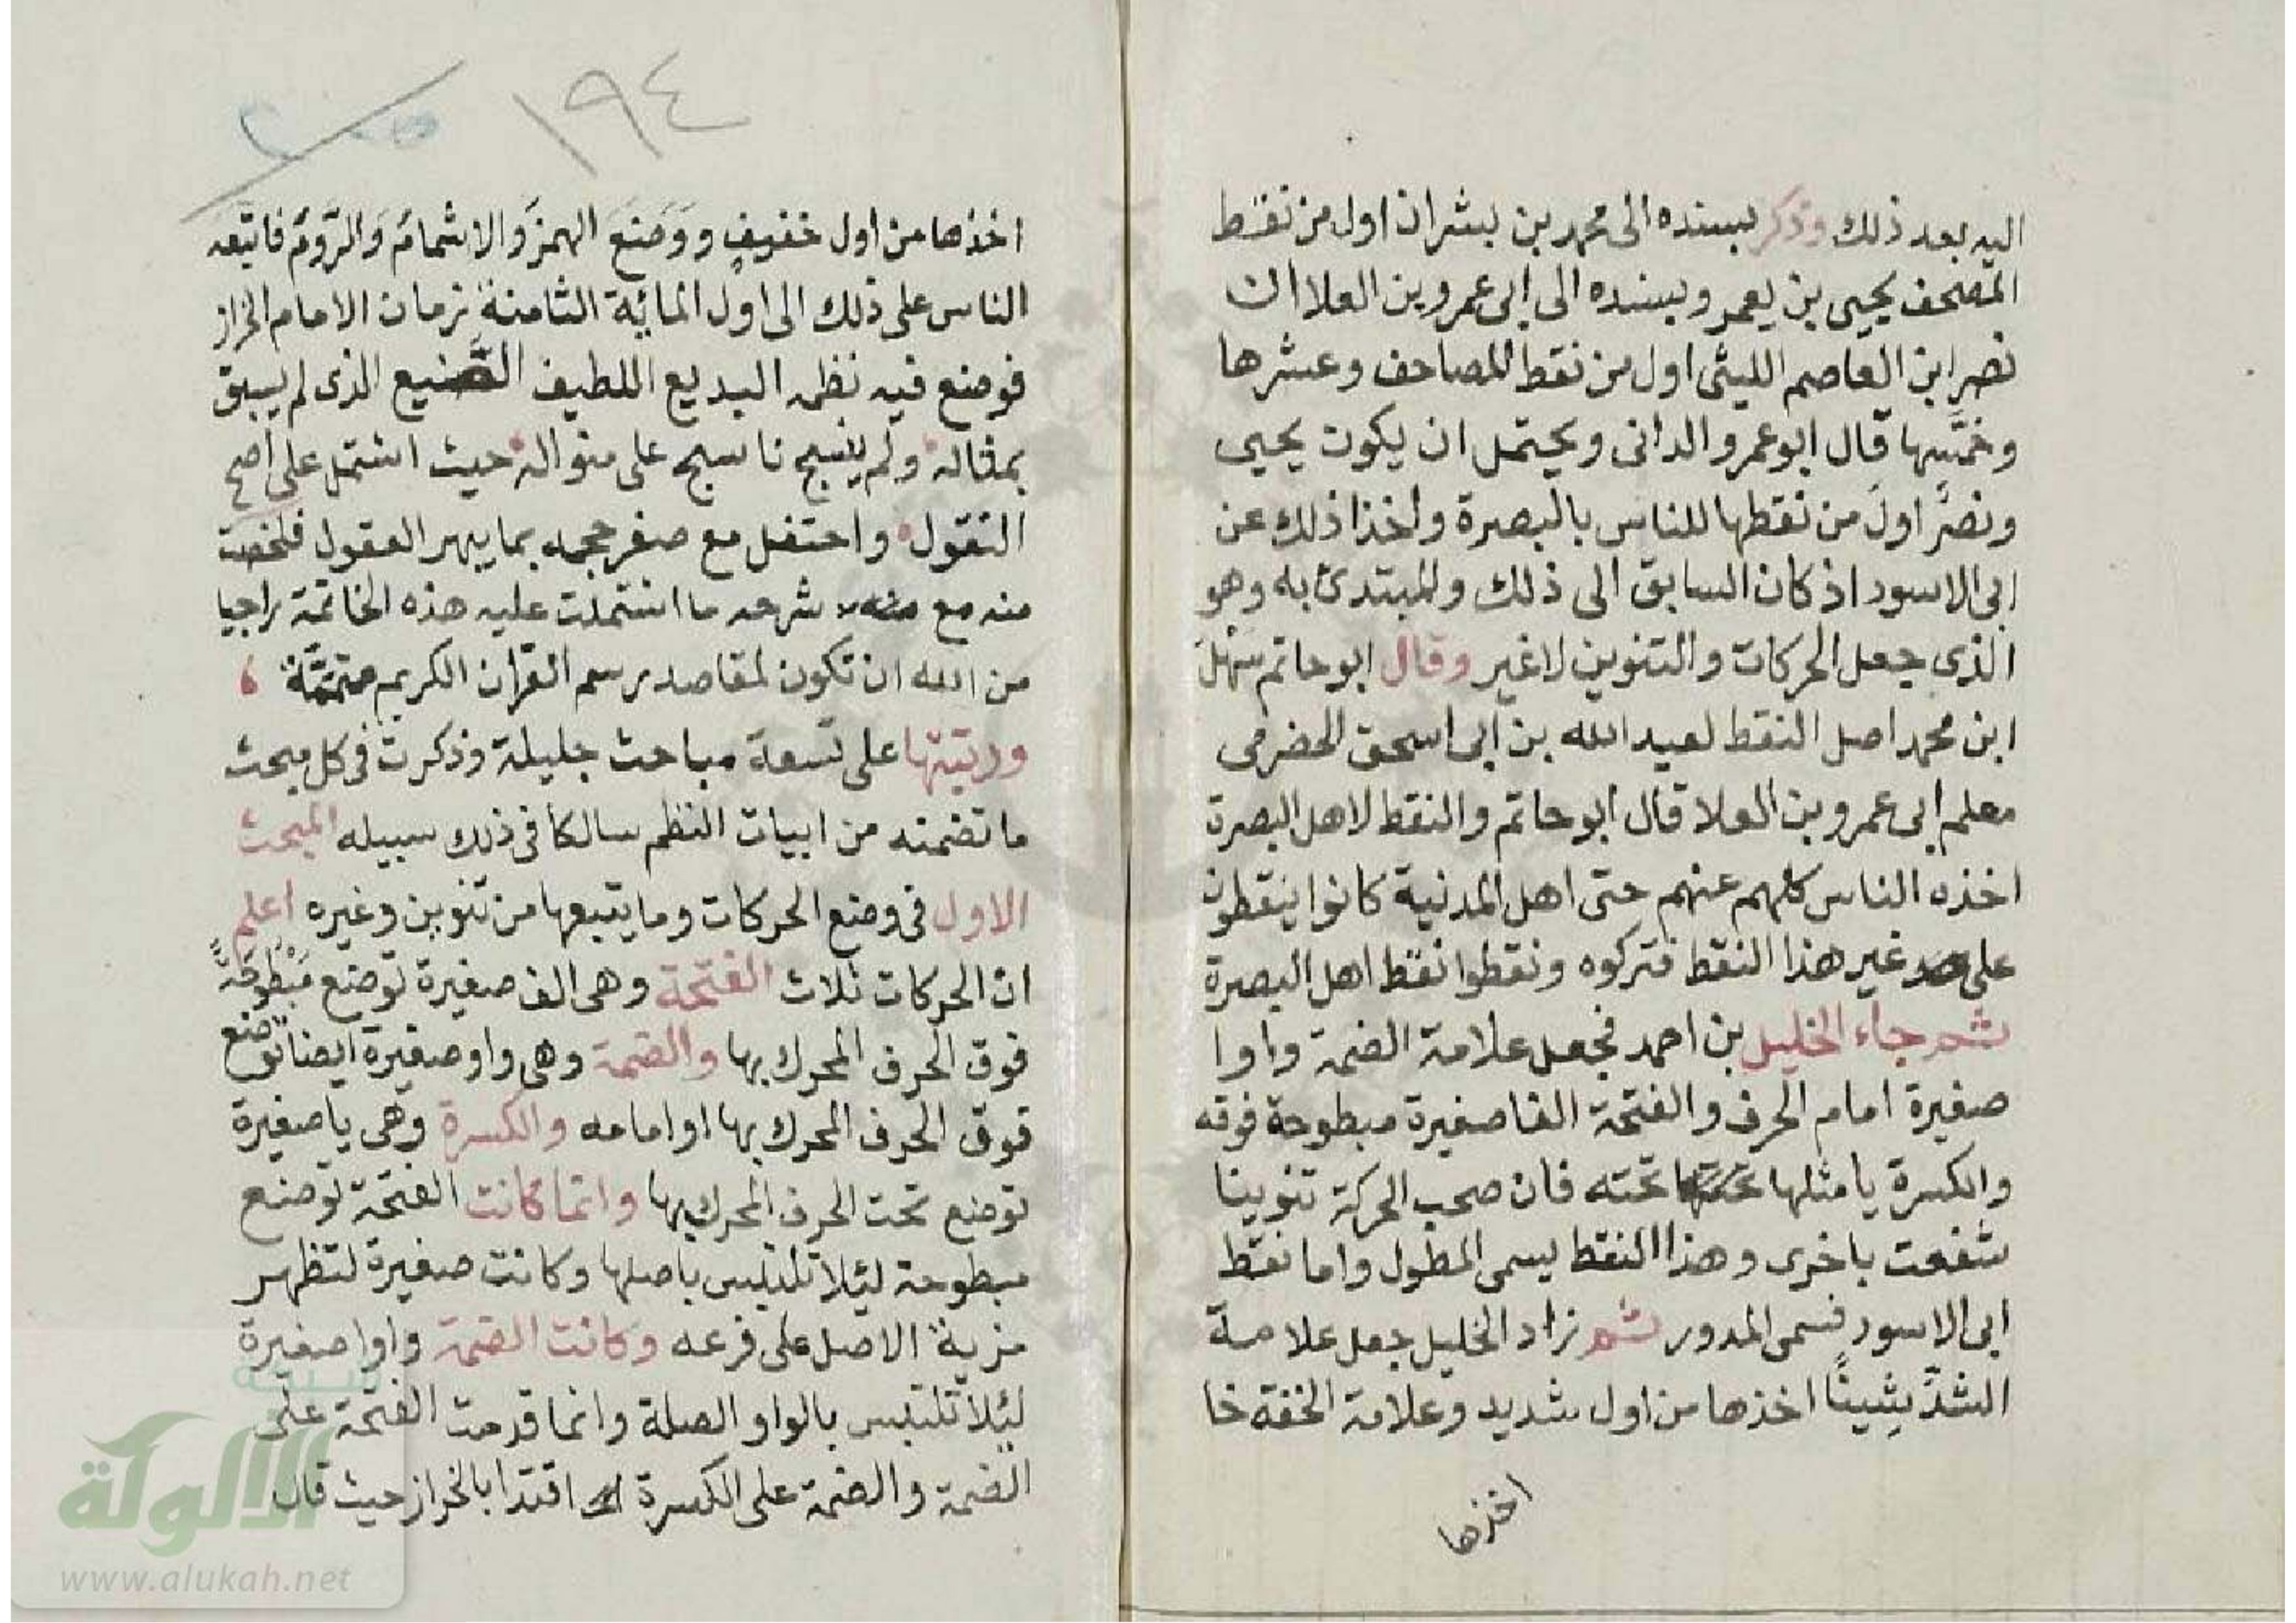 اليه بعد ذلك وذكر بسنده الى محمد بن بشر ان اول من نقط
المصحف يحيى بن يعمر وبسنده الى ابى عمرو بن العلا ان
نصر ابن العاصم الليثى اول من نقط المصاحف وعشرها
وخمسها قال ابو عمرو الدانى ويحتمل ان يكون يحيى
ونصر اول من نقطها للناس بالبصرة واخذا ذلك عن
ابى الاسود اذ كان السابق الى ذلك والمبتدئ به وهو
الذى جعل الحركات والتنوين لا غير وقال ابو حاتم سهل
ابن محمد اصل النقط لعبد الله بن ابى اسحق الحضرمى
معلم ابى عمرو بن العلا قال ابو حاتم والنقط لاهل البصرة
اخذه الناس كلهم عنهم حتى اهل المدنية كانوا ينقطون
على غير هذا النقط فتركوه ونقطوا نقط اهل البصرة
ثم جاء الخليل بن احمد فجعل علامة الضمة واوا
صغيرة امام الحرف والفتحة الفا صغيرة مبطوحة فوقه
والكسرة يا مثلها تحته فان صحب الحركة تنوينا
شفعت باخرى وهذا النقط يسمى المطول واما نقط
ابى الاسود فسمى المدور ثم زاد الخليل جعل علامة
الشدّ شِيناً اخذها من اول شديد وعلامة الخفة خا
اخذها
١٩٤
اخذها من اول خفيف ووَضَعَ الهمزَ والاشمامَ والرَّومَ فاتبعه
الناس على ذلك الى اول المائة الثامنة زمان الامام الخراز
فوضع فيه نظمه البديع اللطيف الصنيع الذى لم يسبق
بمثاله ولم ينسج ناسج على منواله حيث اشتمل على اصح
النقول واحتفل مع صغر حجمه بما يبهر العقول فلخصت
منه مع شرحه ما اشتملت عليه هذه الخاتمة راجيا
من الله ان تكون لمقاصد رسم القران الكريم متممَّة ،
ورتبتها على تسعة مباحث جليلة وذكرت فى كل مبحث
ما تضمنه من ابيات النظم سالكا فى ذلك سبيله المبحث
الاول فى وضع الحركات وما يتبعها من تنوين وغيره اعلم
ان الحركات ثلاث الفتحة وهى الف صغيرة توضع مَبْطوحَةً
فوق الحرف المحرك بها والضمة وهى واو صغيرة ايضا توضع
فوق الحرف المحرك بها او امامه والكسرة وهى يا صغيرة
توضع تحت الحرف المحرك بها وانما كانت الفتحة توضع
مبطوحة ليئلا تلتبس باصلها وكانت صغيرة لتظهر
مزية الاصل على فرعه وكانت الضمة واوا صغيرة
ليئلا تلتبس بالواو الصلة وانما قدمت الفتحة على
الضمة والضمة على الكسرة اقتدا بالخراز حيث قال
شبكة
الألوكة
www.alukah.net